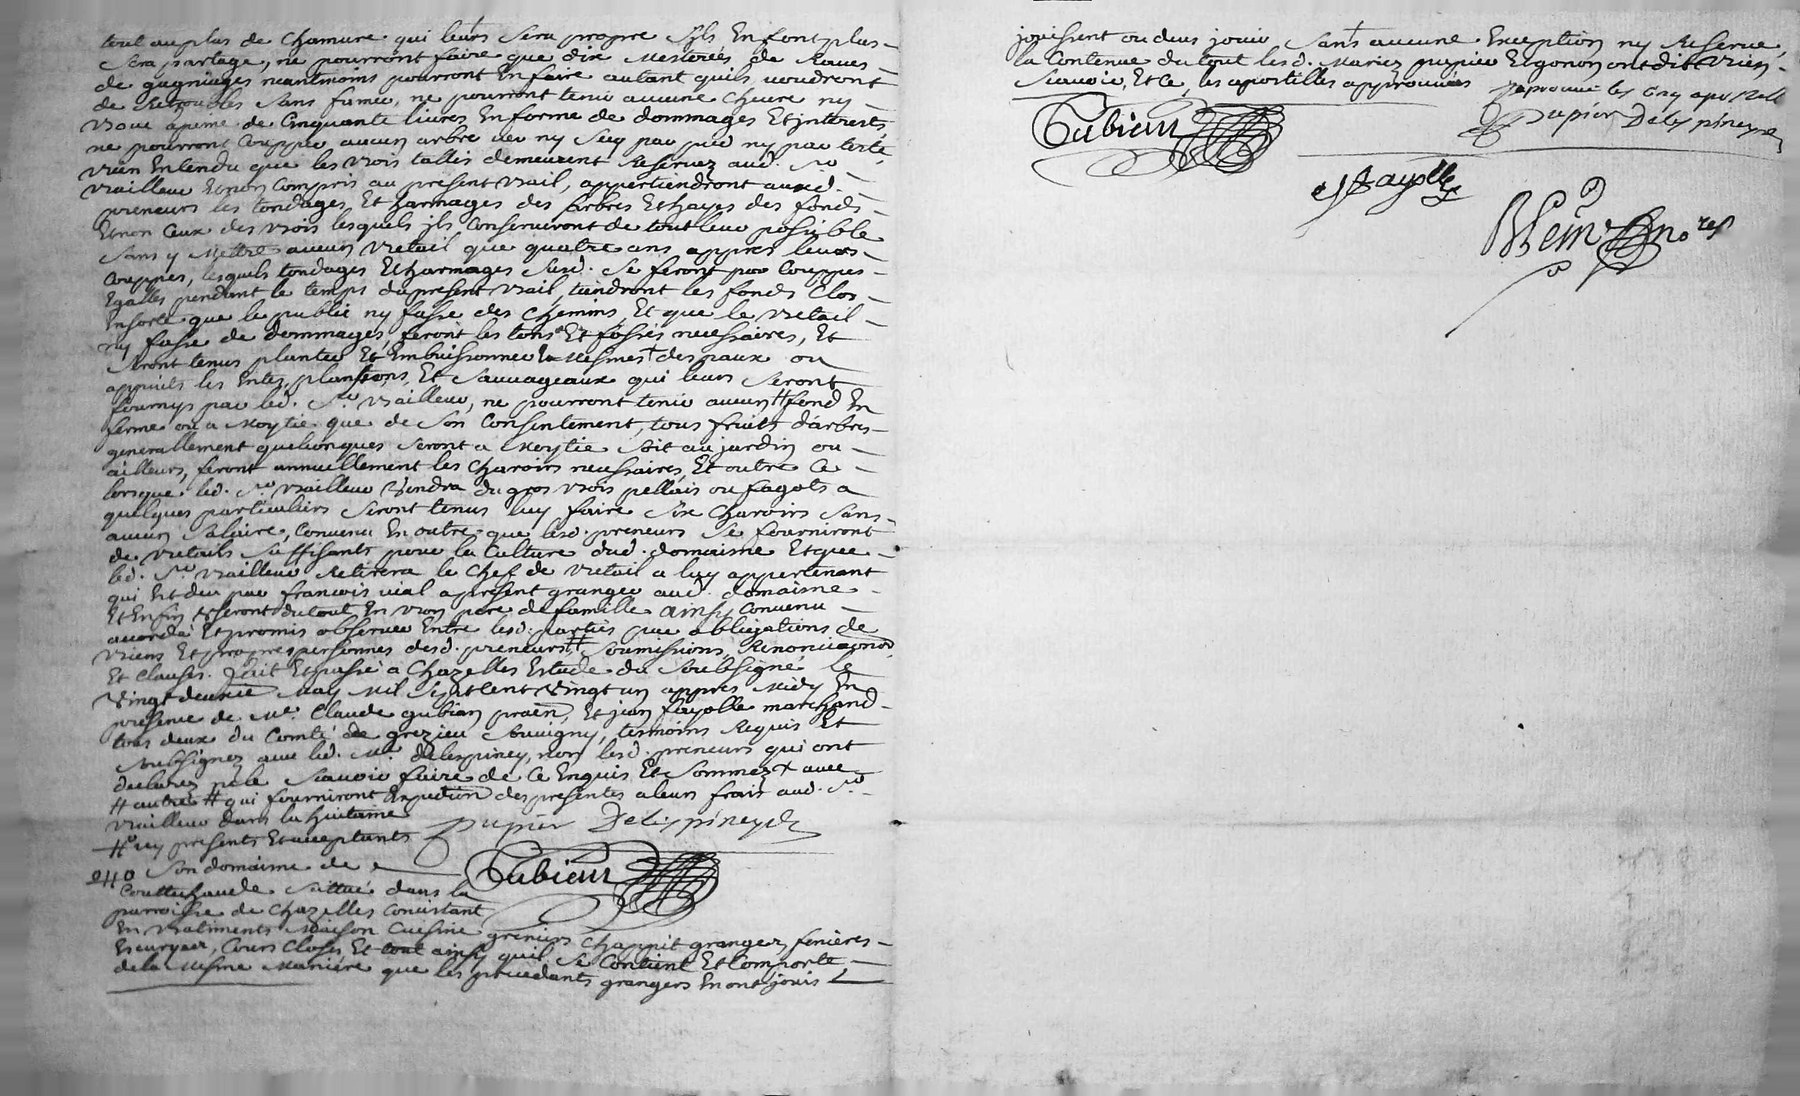 tout au plus de Chamure qui leurs Sera propre Sils En font plus
Sera partagé, ne pourront faire que dix Mesterées de Raues
de gagniages neantmoins pourront En faire autant quils voudront
de Retoubles Sans fumer, ne pourront tenir aucune Cheure ny
a peine de Cinquante liures En forme de dommages Et jnterests
ne pourront Coupper aucun arbre uer ny Secq par pied ny par teste,
vien Entendu que les vois tallis demeurent Reservez aud. Sr.
vailleur Et non Compris au present vail, appartiendront auxd.
preneurs les tondages Et harmages des arbres Et hayes des fonds
Et non Ceux des vois lesquels jls Conserueront de tout leur possible
Sans y Mettre aucun vetail que quatre ans appres leurs
Couppes, lesquels tondages Et harmages Susd. Se feront par Couppes
Egalles pendant le temps du present vail, tiendront les fonds Clos
En sorte que le public ny fasse des Chemins, Et que le vetail
ny fasse de dommages, feront les tons Et fossés necessaires, Et
Seront tenus planter Et Embuissonner Mesmes des paux ou
appuits les Entes, plantions, Et Sauuageaux qui leurs Seront
fournys par led. Sr. vailleur, ne pourront tenir aucun # fond En
ferme ou a Moytié que de Son Consentement, tous fruits d'arbres
generallement quelconques Seront a Moytié Soit au jardin ou
ailleurs, feront annuellement les Charoirs necessaires, Et outre Ce
lorsque led. Sr. vailleur Vendra du gros vois pellais ou fagots a
quelques particuliers Seront tenus luy faire Six Charoirs Sans
aucun Salaire, Conuenu En outre que lesd. preneurs Se fourniront
de vetails Suffisants pour la Culture dud. domaine Et que
led. Sr. vailleur Retirera le Chef de vetail a luy appertenant
qui Est deu par francois vial a present granger aud. domaine
Et Enfin Vseront du tout En von pere de famille ainsy Conuenu
accordé Et promis obseruer Entre lesd. parties par obligations de
viens Et propres personnes desd. preneurs # Soumissions, Renonciations
Et Clauses. fait Et passé a Chazelles Estude du Soubsigné le
Vingt deuxie May Mil Sept Cent Vingt un appres Midy En
presence de Me. Claude gubian praen, Et jean fayolle marchand
tous deux du Comté de grezieu Souuigny, tesmoins Requis Et
Soussignez auec led. Sr. delespiney, non lesd. preneurs qui ont
declarez ne le Scauoir faire de Ce Enquis Et Sommez + auec
# autre # qui fourniront Expedition des presentes a leurs frais aud. Sr.
vailleur dans la huitaine
# cy presents Et acceptants
Pupier Delespiney
Gubian
Son domaine de
Couttehaude Situé dans la
parroisse de Chazelles Consistant
En vatiments Maison Cuisine greniers Chappit granges fenieres
Escuryes, Cours Closes Et tout ainsy quil Se Contient Et Comporte
de la Mesme Maniere que les precedants grangers En ont jouis
jouissent ou deus jouir Sans aucune Exception ny Reserue,
la Contenue du tout lesd. Mariez pupier Et gonon ont dit vien
Scauoir, Et Ce, les apostilles approuuées
Japrouue les
Pupier Delespiney
Gubian
Fayolle